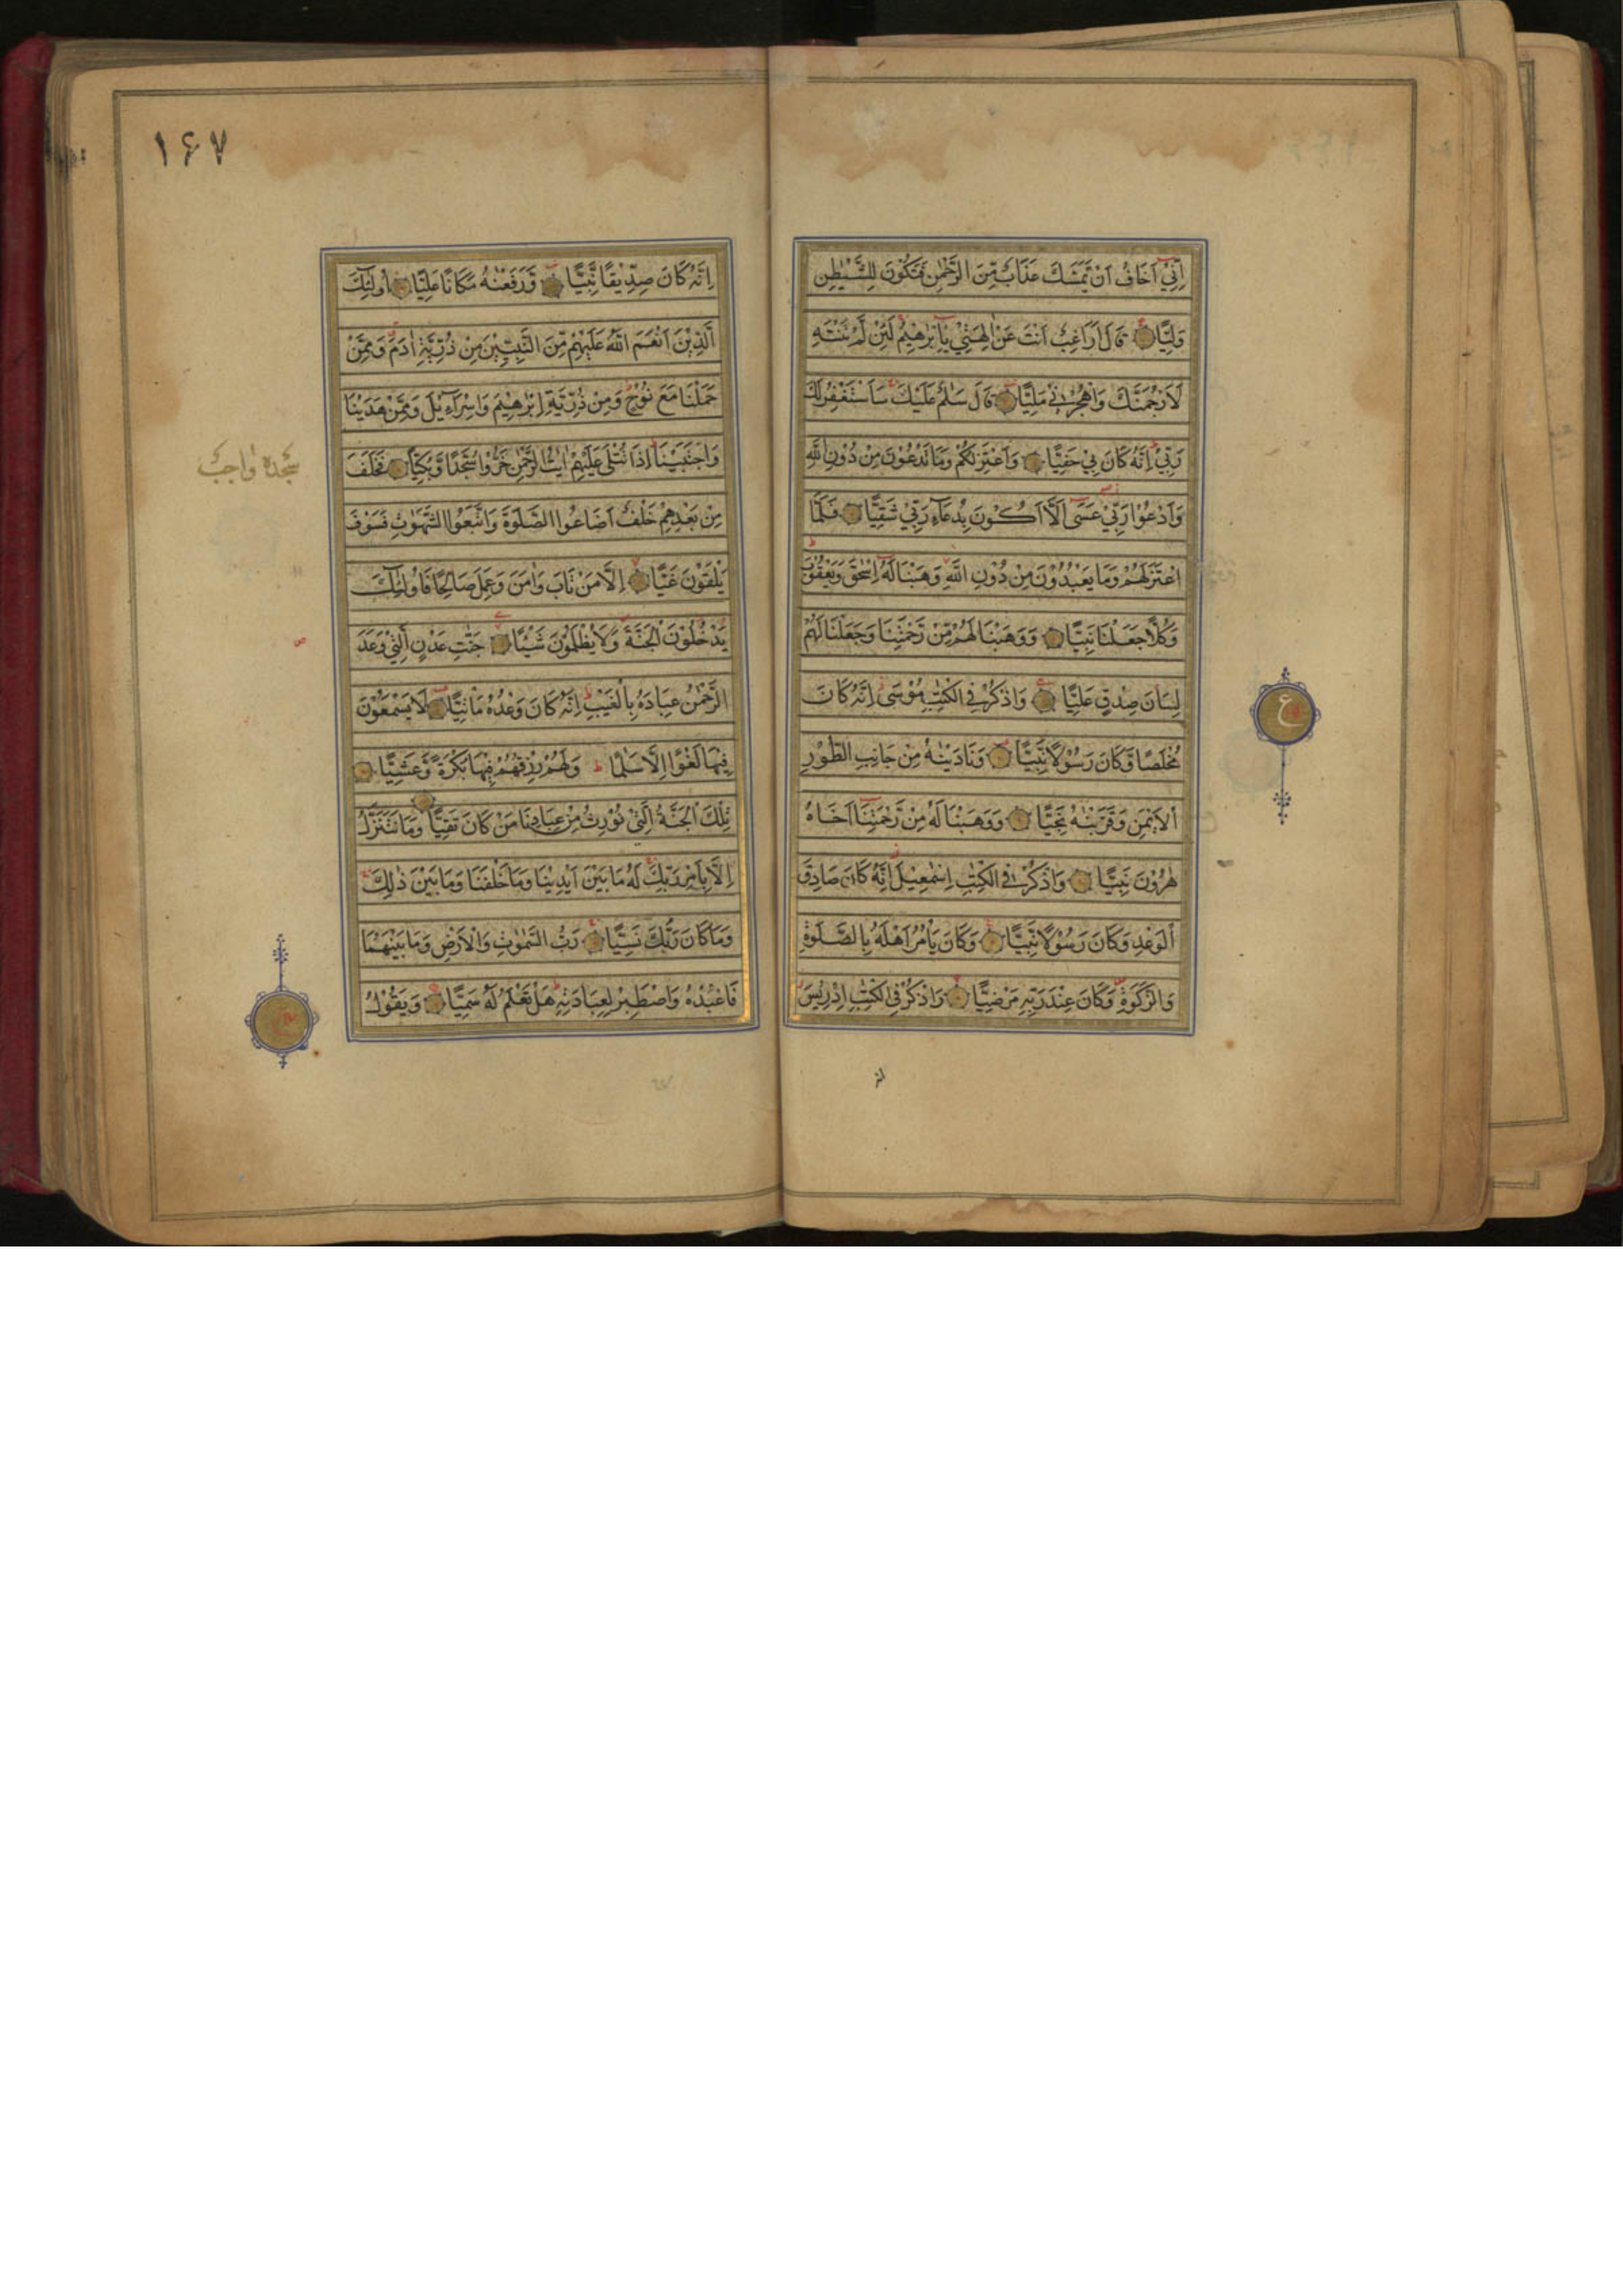 اِنِّيْ اَخَافُ اَنْ يَمَسَّكَ عَذَابٌ مِّنَ الرَّحْمٰنِ فَتَكُوْنَ لِلشَّيْطٰنِ
وَلِيًّا قَالَ اَرَاغِبٌ اَنْتَ عَنْ اٰلِهَتِيْ يٰٓاِبْرٰهِيْمُ لَئِنْ لَمْ تَنْتَهِ
لَاَرْجُمَنَّكَ وَاهْجُرْنِيْ مَلِيًّا قَالَ سَلٰمٌ عَلَيْكَ سَاَسْتَغْفِرُ لَكَ
رَبِّيْ اِنَّهُ كَانَ بِيْ حَفِيًّا وَاَعْتَزِلُكُمْ وَمَا تَدْعُوْنَ مِنْ دُوْنِ اللّٰهِ
وَاَدْعُوْا رَبِّيْ عَسٰٓى اَلَّا اَكُوْنَ بِدُعَآءِ رَبِّيْ شَقِيًّا فَلَمَّا
اعْتَزَلَهُمْ وَمَا يَعْبُدُوْنَ مِنْ دُوْنِ اللّٰهِ وَهَبْنَا لَهٗٓ اِسْحٰقَ وَيَعْقُوْبَ
وَكُلًّا جَعَلْنَا نَبِيًّا وَوَهَبْنَا لَهُمْ مِّنْ رَّحْمَتِنَا وَجَعَلْنَا لَهُمْ
لِسَانَ صِدْقٍ عَلِيًّا وَاذْكُرْ فِي الْكِتٰبِ مُوْسٰٓى اِنَّهٗ كَانَ
مُخْلَصًا وَّكَانَ رَسُوْلًا نَّبِيًّا وَنَادَيْنٰهُ مِنْ جَانِبِ الطُّوْرِ
الْاَيْمَنِ وَقَرَّبْنٰهُ نَجِيًّا وَوَهَبْنَا لَهٗ مِنْ رَّحْمَتِنَآ اَخَاهُ
هٰرُوْنَ نَبِيًّا وَاذْكُرْ فِي الْكِتٰبِ اِسْمٰعِيْلَ اِنَّهٗ كَانَ صَادِقَ
الْوَعْدِ وَكَانَ رَسُوْلًا نَّبِيًّا وَكَانَ يَاْمُرُ اَهْلَهٗ بِالصَّلٰوةِ
وَالزَّكٰوةِ وَكَانَ عِنْدَ رَبِّهٖ مَرْضِيًّا وَاذْكُرْ فِي الْكِتٰبِ اِدْرِيْسَ
ع
انه
۱۶۷
اِنَّهٗ كَانَ صِدِّيْقًا نَّبِيًّا وَّرَفَعْنٰهُ مَكَانًا عَلِيًّا اُولٰٓئِكَ
الَّذِيْنَ اَنْعَمَ اللّٰهُ عَلَيْهِمْ مِّنَ النَّبِيّٖنَ مِنْ ذُرِّيَّةِ اٰدَمَ وَمِمَّنْ
حَمَلْنَا مَعَ نُوْحٍ وَمِنْ ذُرِّيَّةِ اِبْرٰهِيْمَ وَاِسْرَآءِيْلَ وَمِمَّنْ هَدَيْنَا
وَاجْتَبَيْنَا اِذَا تُتْلٰى عَلَيْهِمْ اٰيٰتُ الرَّحْمٰنِ خَرُّوْا سُجَّدًا وَّبُكِيًّا فَخَلَفَ
سجدة واجب
مِنْ بَعْدِهِمْ خَلْفٌ اَضَاعُوا الصَّلٰوةَ وَاتَّبَعُوا الشَّهَوٰتِ فَسَوْفَ
يَلْقَوْنَ غَيًّا اِلَّا مَنْ تَابَ وَاٰمَنَ وَعَمِلَ صَالِحًا فَاُولٰٓئِكَ
يَدْخُلُوْنَ الْجَنَّةَ وَلَا يُظْلَمُوْنَ شَيْئًا جَنّٰتِ عَدْنٍ الَّتِيْ وَعَدَ
الرَّحْمٰنُ عِبَادَهٗ بِالْغَيْبِ اِنَّهٗ كَانَ وَعْدُهٗ مَاْتِيًّا لَا يَسْمَعُوْنَ
فِيْهَا لَغْوًا اِلَّا سَلٰمًا وَلَهُمْ رِزْقُهُمْ فِيْهَا بُكْرَةً وَّعَشِيًّا
تِلْكَ الْجَنَّةُ الَّتِيْ نُوْرِثُ مِنْ عِبَادِنَا مَنْ كَانَ تَقِيًّا وَمَا نَتَنَزَّلُ
اِلَّا بِاَمْرِ رَبِّكَ لَهٗ مَا بَيْنَ اَيْدِيْنَا وَمَا خَلْفَنَا وَمَا بَيْنَ ذٰلِكَ
وَمَا كَانَ رَبُّكَ نَسِيًّا رَبُّ السَّمٰوٰتِ وَالْاَرْضِ وَمَا بَيْنَهُمَا
فَاعْبُدْهُ وَاصْطَبِرْ لِعِبَادَتِهٖ هَلْ تَعْلَمُ لَهٗ سَمِيًّا وَيَقُوْلُ